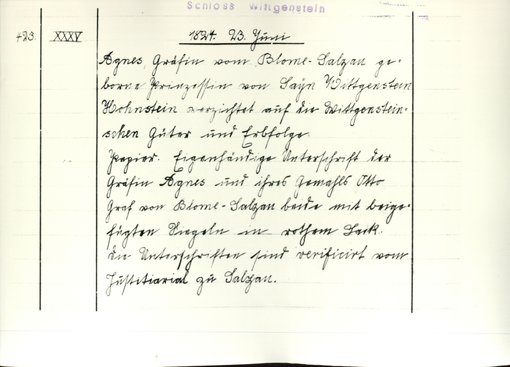 Schloss Wittgenstein
423. XXXV 1824. 23. Juni
Agnes Gräfin vom Blome-Salzau ge-
borne Prinzessin von Sayn Wittgenstein
Hohnstein verzichtet auf die Wittgenstein-
schen Güter und Erbfolge.
Papier. Eigenhändige Unterschrift der
Gräfin Agnes und ihres Gemahls Otto
Graf von Blome-Salzau beide mit beige-
fügten Siegeln in rothem Lack.
Die Unterschriften sind verificirt vom
Justitiariat zu Salzau.